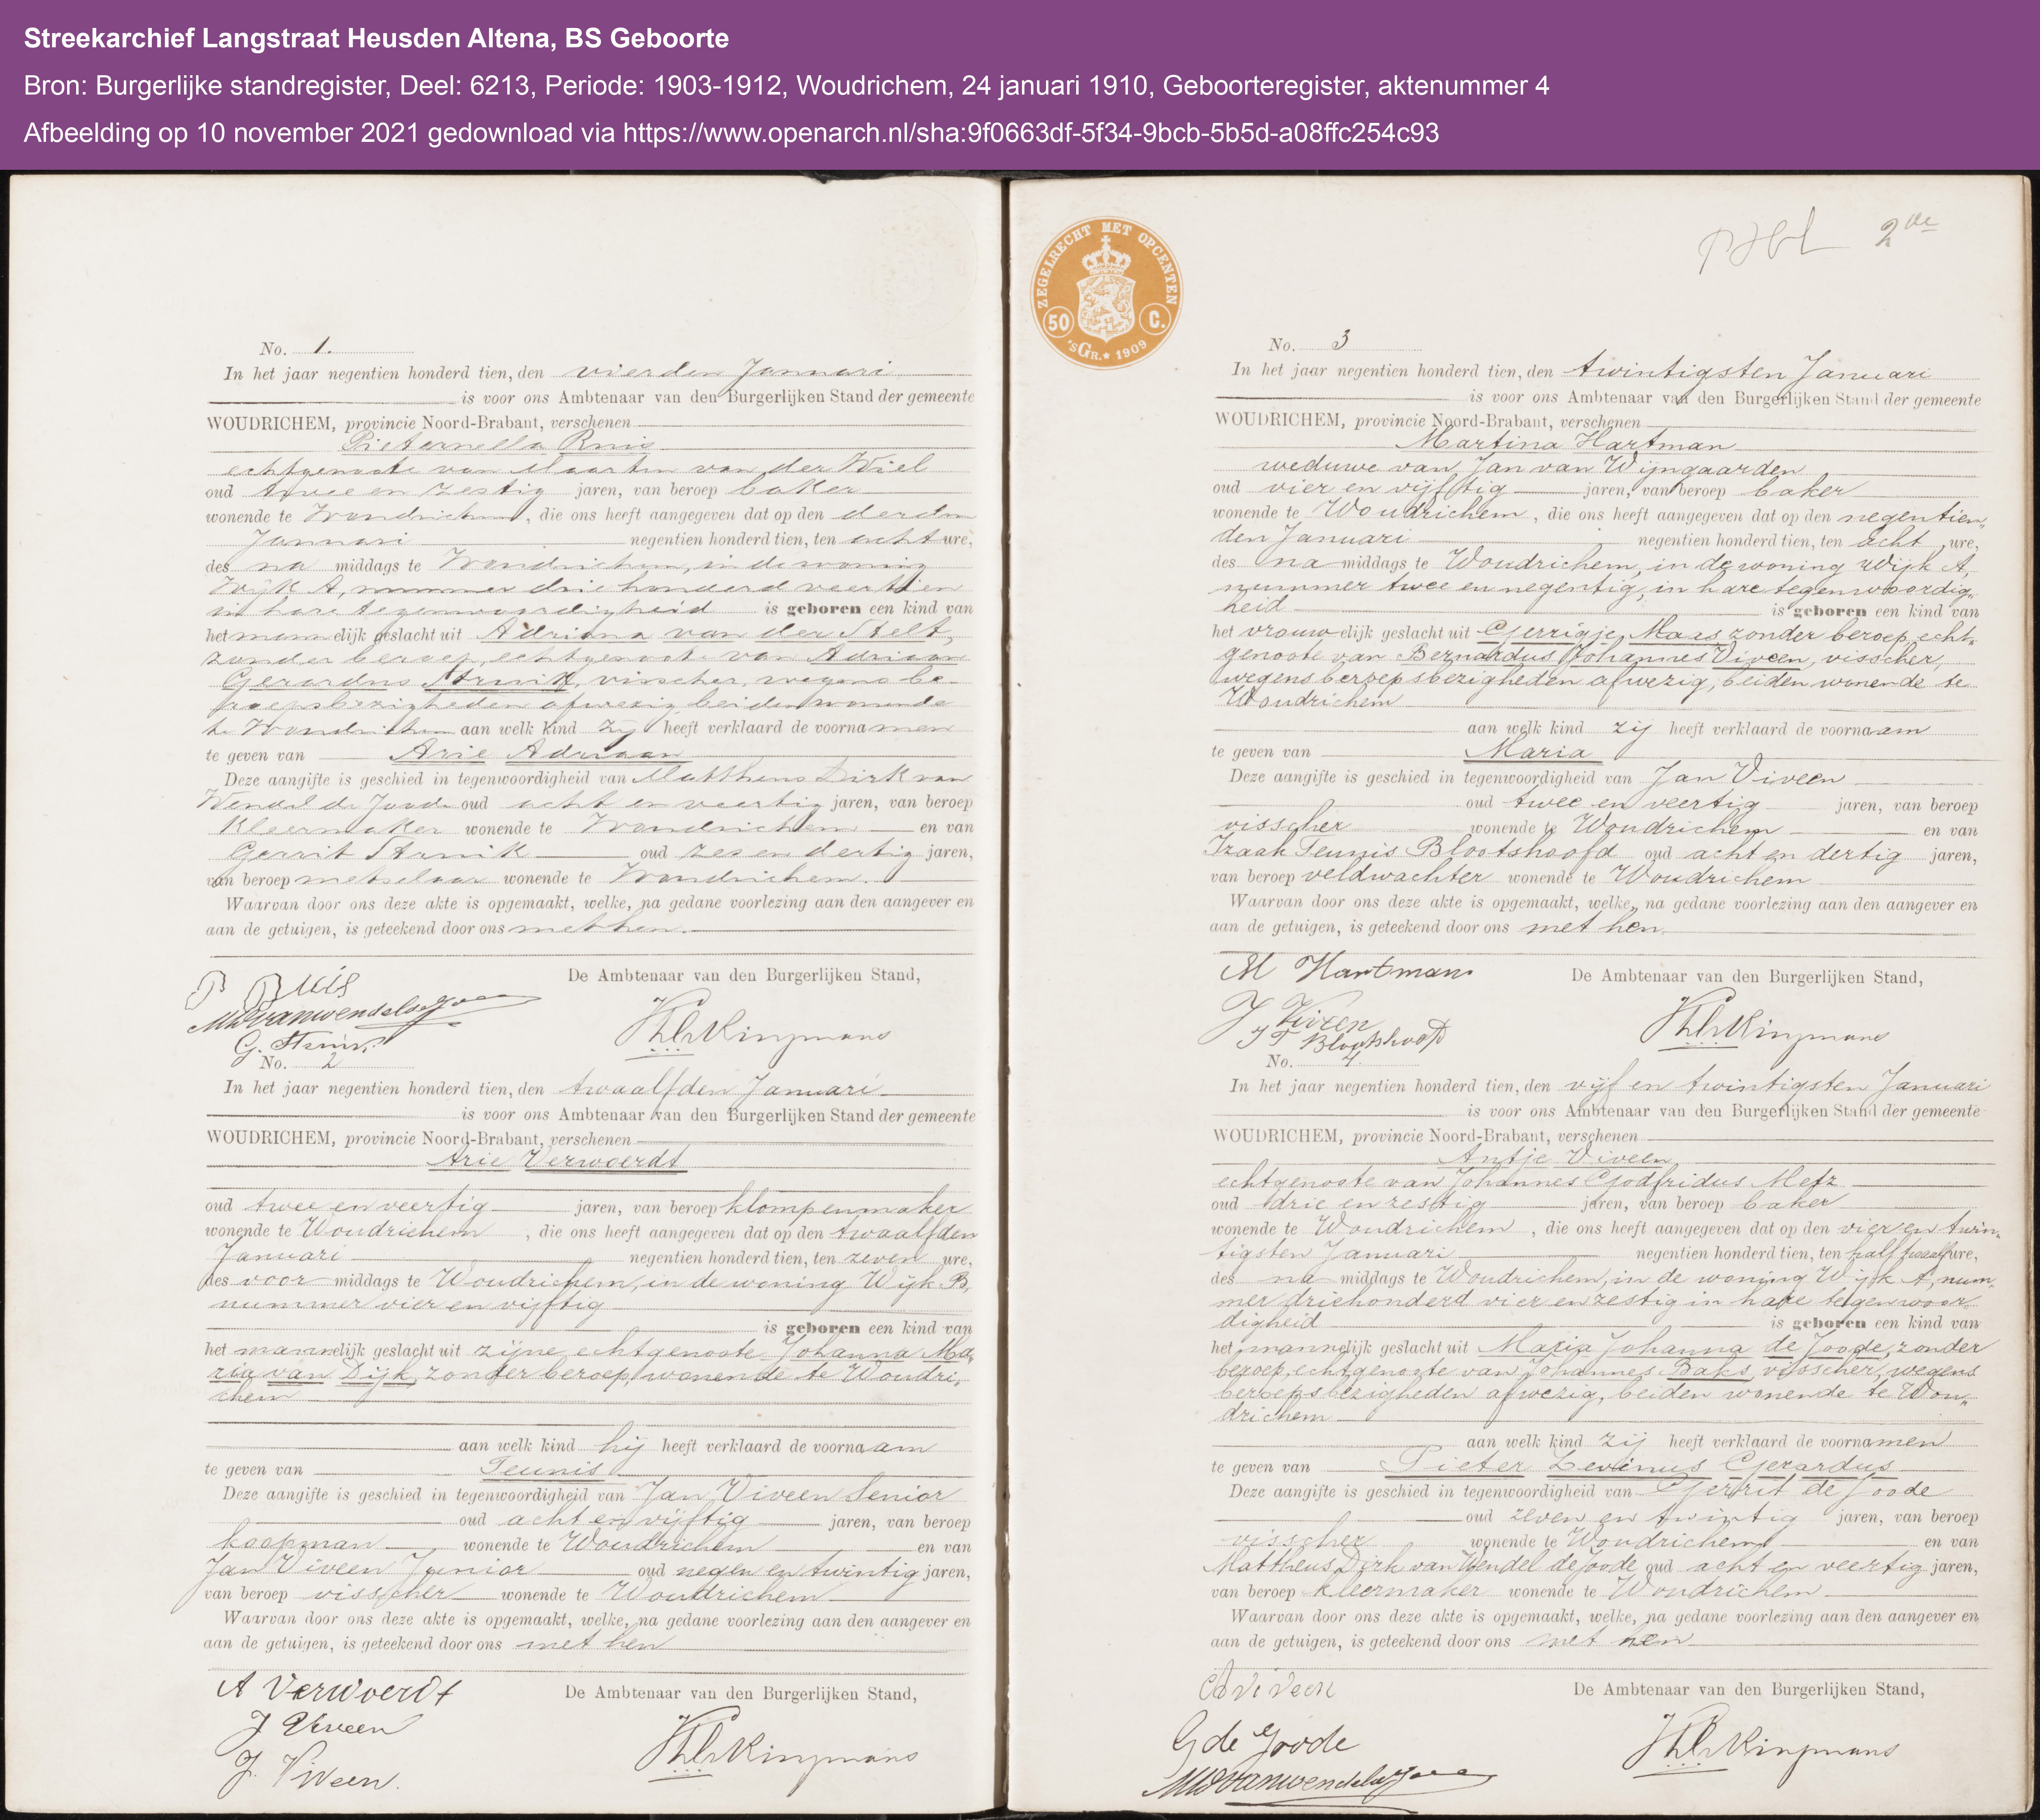 Streekarchief Langstraat Heusden Altena, BS Geboorte
Bron: Burgerlijke standregister, Deel: 6213, Periode: 1903-1912, Woudrichem, 24 januari 1910, Geboorteregister, aktenummer 4
Afbeelding op 10 november 2021 gedownload via https://www.openarch.nl/sha:9f0663df-5f34-9bcb-5b5d-a08ffc254c93
No. 1.
In het jaar negentien honderd tien, den vierden Januari
is voor ons Ambtenaar van den Burgerlijken Stand der gemeente
WOUDRICHEM, provincie Noord-Brabant, verschenen
Pieternella Ruis
echtgenoote van Maarten van der Wiel
oud twee en zestig jaren, van beroep baker
wonende te Woudrichem, die ons heeft aangegeven dat op den derden
Januari negentien honderd tien, ten acht ure,
des na middags te Woudrichem, in de woning
Wijk A, nummer driehonderd veertien
in hare tegenwoordigheid is geboren een kind van
het mannelijk geslacht uit Adriana van der Stelt,
zonder beroep, echtgenoote van Adriaan
Gerardus Struik, visscher, wegens be-
roepsbezigheden afwezig beiden wonende
te Woudrichem aan welk kind zij heeft verklaard de voornamen
te geven van Arie Adriaan
Deze aangifte is geschied in tegenwoordigheid van Mattheus Dirk van
Wendel de Joode oud acht en veertig jaren, van beroep
Kleermaker wonende te Woudrichem en van
Gerrit Struik oud zes en dertig jaren,
van beroep metselaar wonende te Woudrichem.
Waarvan door ons deze akte is opgemaakt, welke, na gedane voorlezing aan den aangever en
aan de getuigen, is geteekend door ons met hen.
P Ruis
De Ambtenaar van den Burgerlijken Stand,
MDvanwendeldejoode
G. Struik
No. 2
In het jaar negentien honderd tien, den twaalfden Januari
is voor ons Ambtenaar van den Burgerlijken Stand der gemeente
WOUDRICHEM, provincie Noord-Brabant, verschenen
Arie Verwoerdt
oud twee en veertig jaren, van beroep klompenmaker
wonende te Woudrichem, die ons heeft aangegeven dat op den twaalfden
Januari negentien honderd tien, ten zeven ure,
des voor middags te Woudrichem, in de woning Wijk B,
nummer vier en vijftig
is geboren een kind van
het mannelijk geslacht uit zijne echtgenoote Johanna Ma„
ria van Dijk, zonder beroep, wonende te Woudri„
chem
aan welk kind hij heeft verklaard de voornaam
te geven van Teunis
Deze aangifte is geschied in tegenwoordigheid van Jan Viveen Senior
oud acht en vijftig jaren, van beroep
koopman wonende te Woudrichem en van
Jan Viveen Junior oud negen en twintig jaren,
van beroep visscher wonende te Woudrichem
Waarvan door ons deze akte is opgemaakt, welke, na gedane voorlezing aan den aangever en
aan de getuigen, is geteekend door ons met hen
A Verwoerdt
De Ambtenaar van den Burgerlijken Stand,
J Viveen
J. Viveen.
ZEGELRECHT MET OPCENTEN
50 C.
'sGR. * 1909
2de
No. 3
In het jaar negentien honderd tien, den twintigsten Januari
is voor ons Ambtenaar van den Burgerlijken Stand der gemeente
WOUDRICHEM, provincie Noord-Brabant, verschenen
Martina Hartman
weduwe van Jan van Wijngaarden
oud vier en vijftig jaren, van beroep baker
wonende te Woudrichem, die ons heeft aangegeven dat op den negentien„
den Januari negentien honderd tien, ten acht ure,
des na middags te Woudrichem, in de woning Wijk A,
nummer twee en negentig, in hare tegenwoordig„
heid is geboren een kind van
het vrouwelijk geslacht uit Gerrigje Maas zonder beroep, echt„
genoote van Bernardus Johannes Viveen, visscher,
wegens beroepsbezigheden afwezig, beiden wonende te
Woudrichem
aan welk kind zij heeft verklaard de voornaam
te geven van Maria
Deze aangifte is geschied in tegenwoordigheid van Jan Viveen
oud twee en veertig jaren, van beroep
visscher wonende te Woudrichem en van
Izaak Teunis Blootshoofd oud acht en dertig jaren,
van beroep veldwachter wonende te Woudrichem
Waarvan door ons deze akte is opgemaakt, welke, na gedane voorlezing aan den aangever en
aan de getuigen, is geteekend door ons met hen
M Hartman
De Ambtenaar van den Burgerlijken Stand,
J Viveen
I T Blootshoofd
No. 4.
In het jaar negentien honderd tien, den vijf en twintigsten Januari
is voor ons Ambtenaar van den Burgerlijken Stand der gemeente
WOUDRICHEM, provincie Noord-Brabant, verschenen
Antje Viveen
echtgenoote van Johannes Godfridus Metz
oud drie en zestig jaren, van beroep baker
wonende te Woudrichem, die ons heeft aangegeven dat op den vier en twin„
tigsten Januari negentien honderd tien, ten half twaalf ure,
des na middags te Woudrichem, in de woning Wijk A, num„
mer driehonderd vier en zestig in hare tegenwoor„
digheid is geboren een kind van
het mannelijk geslacht uit Maria Johanna de Joode, zonder
beroep, echtgenoote van Johannes Baks, visscher, wegens
beroepsbezigheden afwezig, beiden wonende te Wou„
drichem
aan welk kind zij heeft verklaard de voornamen
te geven van Pieter Levinus Gerardus
Deze aangifte is geschied in tegenwoordigheid van Gerrit de Joode
oud zeven en twintig jaren, van beroep
visscher wonende te Woudrichem en van
Mattheus Dirk van Wendel de Joode oud acht en veertig jaren,
van beroep kleermaker wonende te Woudrichem
Waarvan door ons deze akte is opgemaakt, welke, na gedane voorlezing aan den aangever en
aan de getuigen, is geteekend door ons met hen
A Viveen
De Ambtenaar van den Burgerlijken Stand,
G de Joode
MDvanwendeldejoode